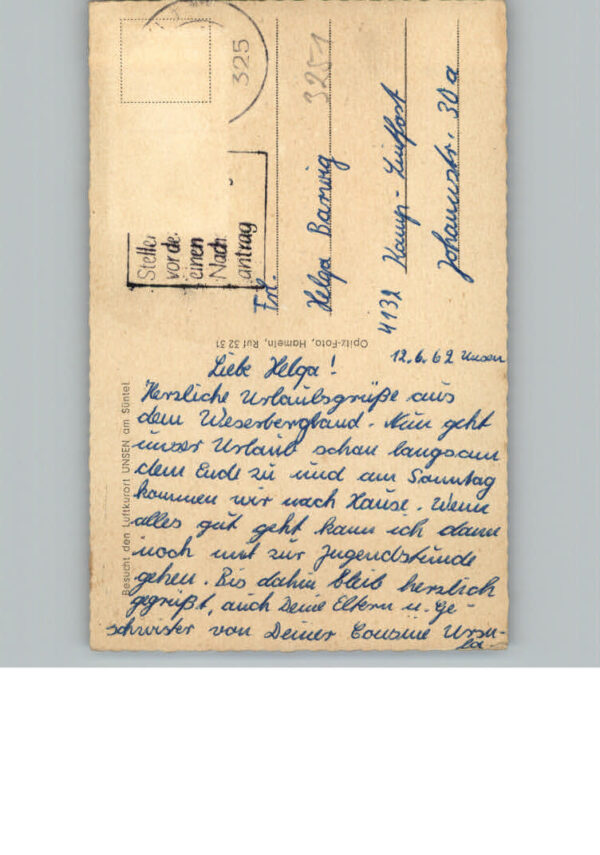 325
Stelle
vor de
einen
Nach
antrag
Frl.
Helga Barwig
3251
4132 Kamp-Lintfort
Johannstr. 30a
Opitz-Foto, Hameln, Ruf 32 51
Besucht den Luftkurort UNSEN am Süntel
12.6.62 Unsen
Liebe Helga!
Herzliche Urlaubsgrüße aus
dem Weserbergland. Nun geht
unser Urlaub schon langsam
dem Ende zu und am Sonntag
kommen wir nach Hause. Wenn
alles gut geht kann ich dann
noch mit zur Jugendstunde
gehen. Bis dahin bleib herzlich
gegrüßt, auch Deine Eltern u. Ge-
schwister von Deiner Cousine Ursu-
la.